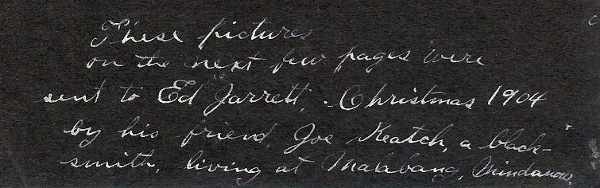 These pictures
on the next few pages were
sent to Ed Jarrett, Christmas 1904
by his friend, Joe Keatch, a black-
smith, living at Marabang, Mindanao,